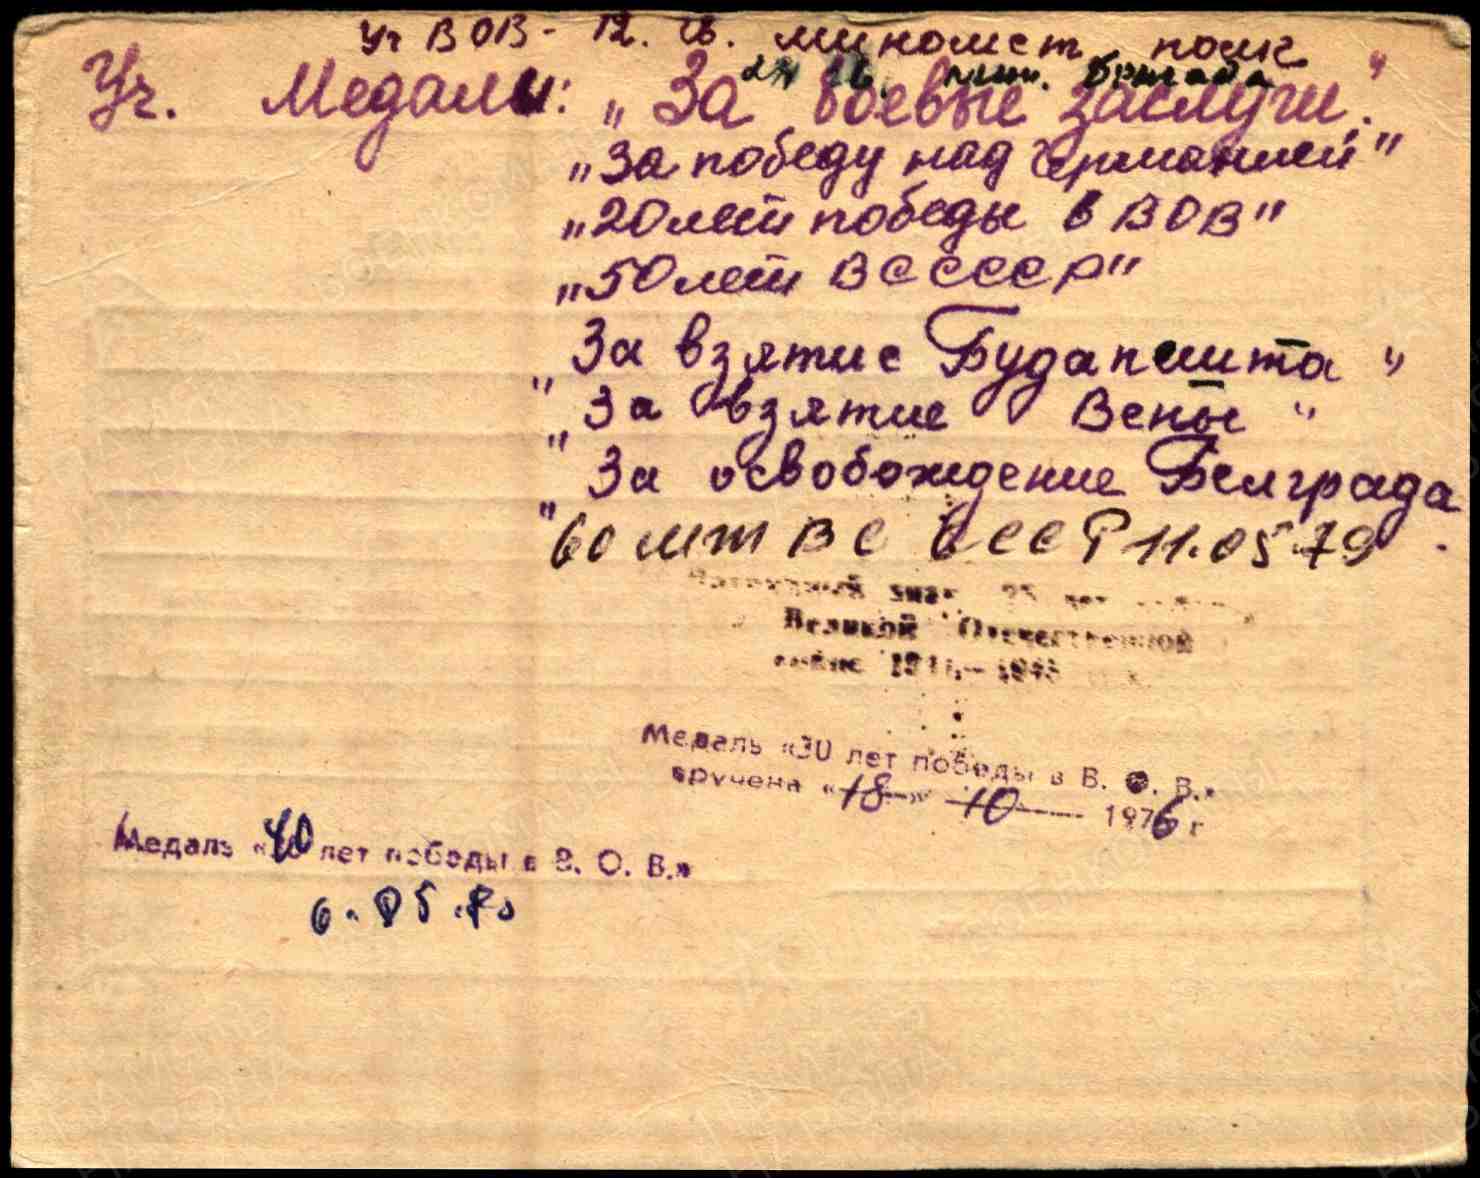 Уч ВОВ - 12. гв. миномет полк
гв. мин. бригада
Уч. Медали: „За боевые заслуги."
„За победу над Германией"
„20 лет победы в ВОВ"
„50 лет ВС СССР"
„За взятие Будапешта"
„За взятие Вены"
„За освобождение Белграда
60 лет ВС СССР 11.05.79.
знак 25 лет
Великой Отечественной
войне 1941-1945
Медаль «30 лет победы в В. О. В.»
вручена «18» 10 1976 г
Медаль «40 лет победы в В. О. В.»
6.05.